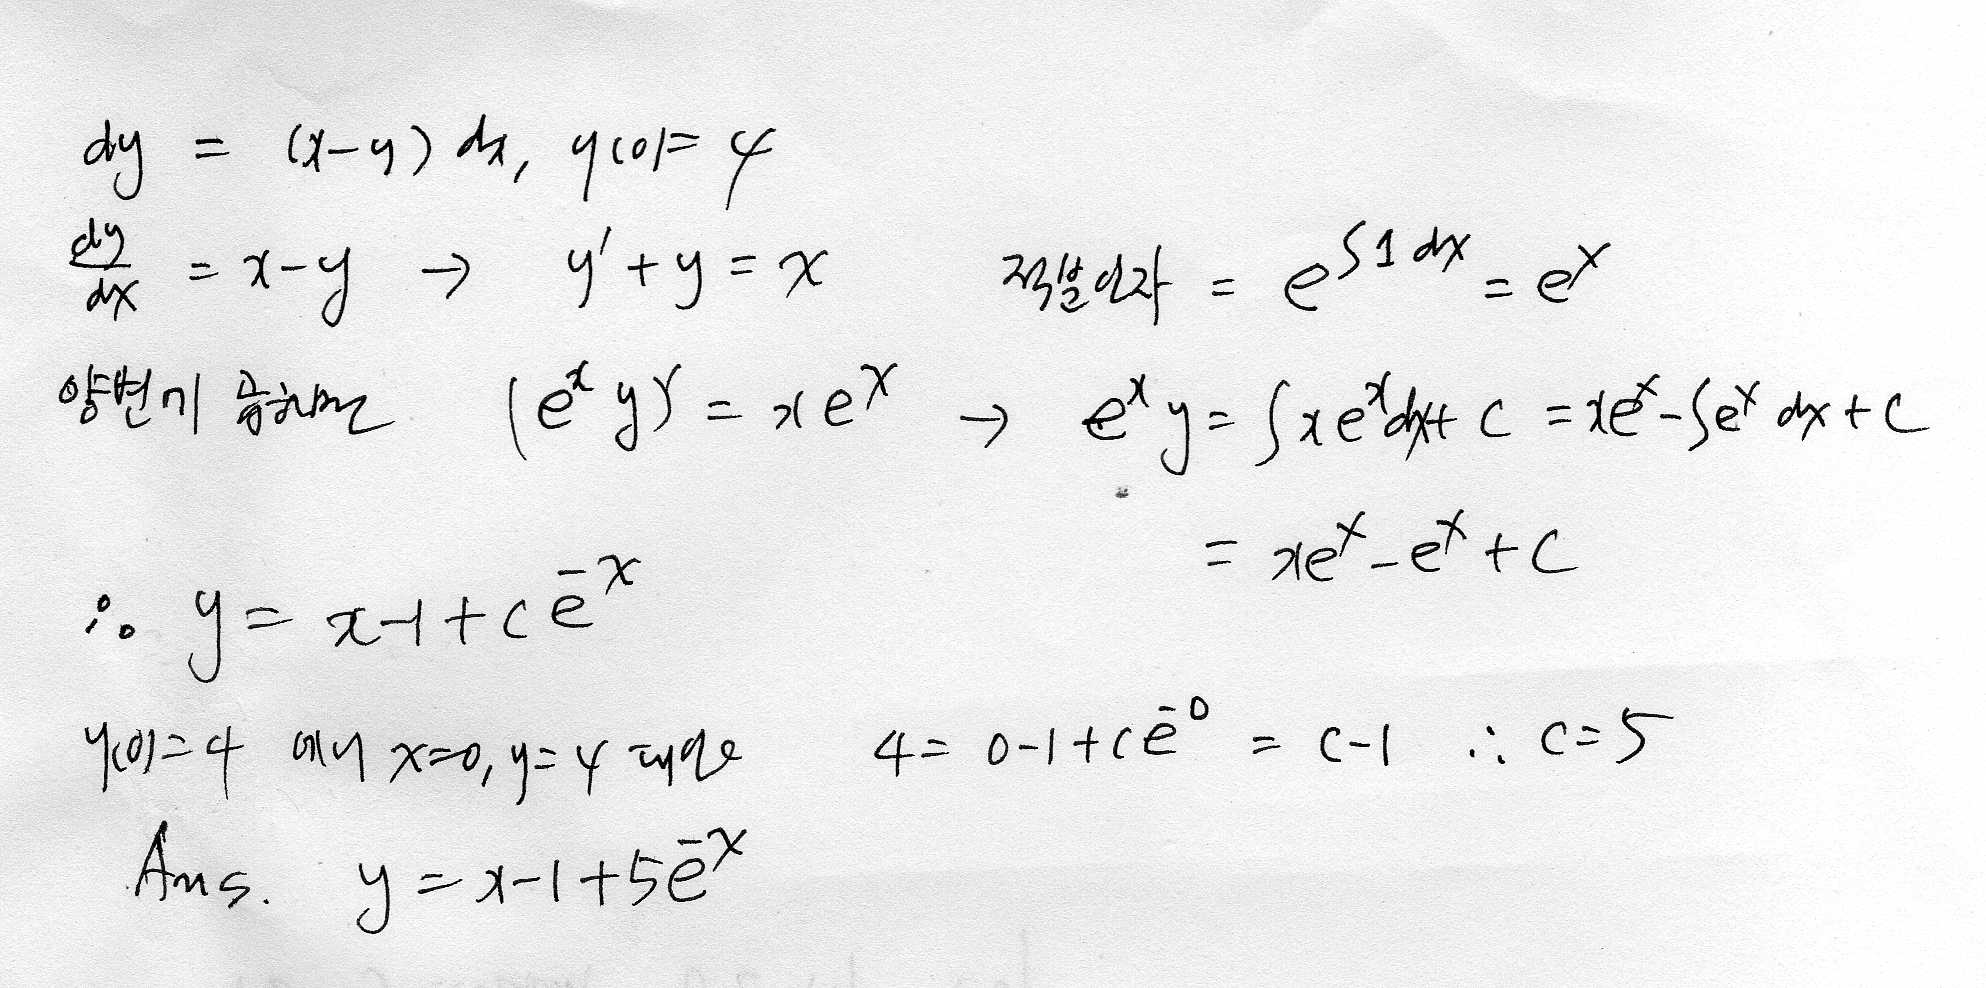 dy = (x-y) dx, y(0)= 4
dy/dx = x-y → y'+y = x 적분인자 = e^∫1 dx = e^x
양변에 곱하면 (e^x y)' = xe^x → e^x y = ∫xe^x dx + C = xe^x - ∫e^x dx + C
= xe^x - e^x + C
∴ y = x-1+ce^-x
y(0)=4 에서 x=0, y=4 대입 4 = 0-1+ce^-0 = c-1 ∴ c=5
Ans. y = x-1+5e^-x